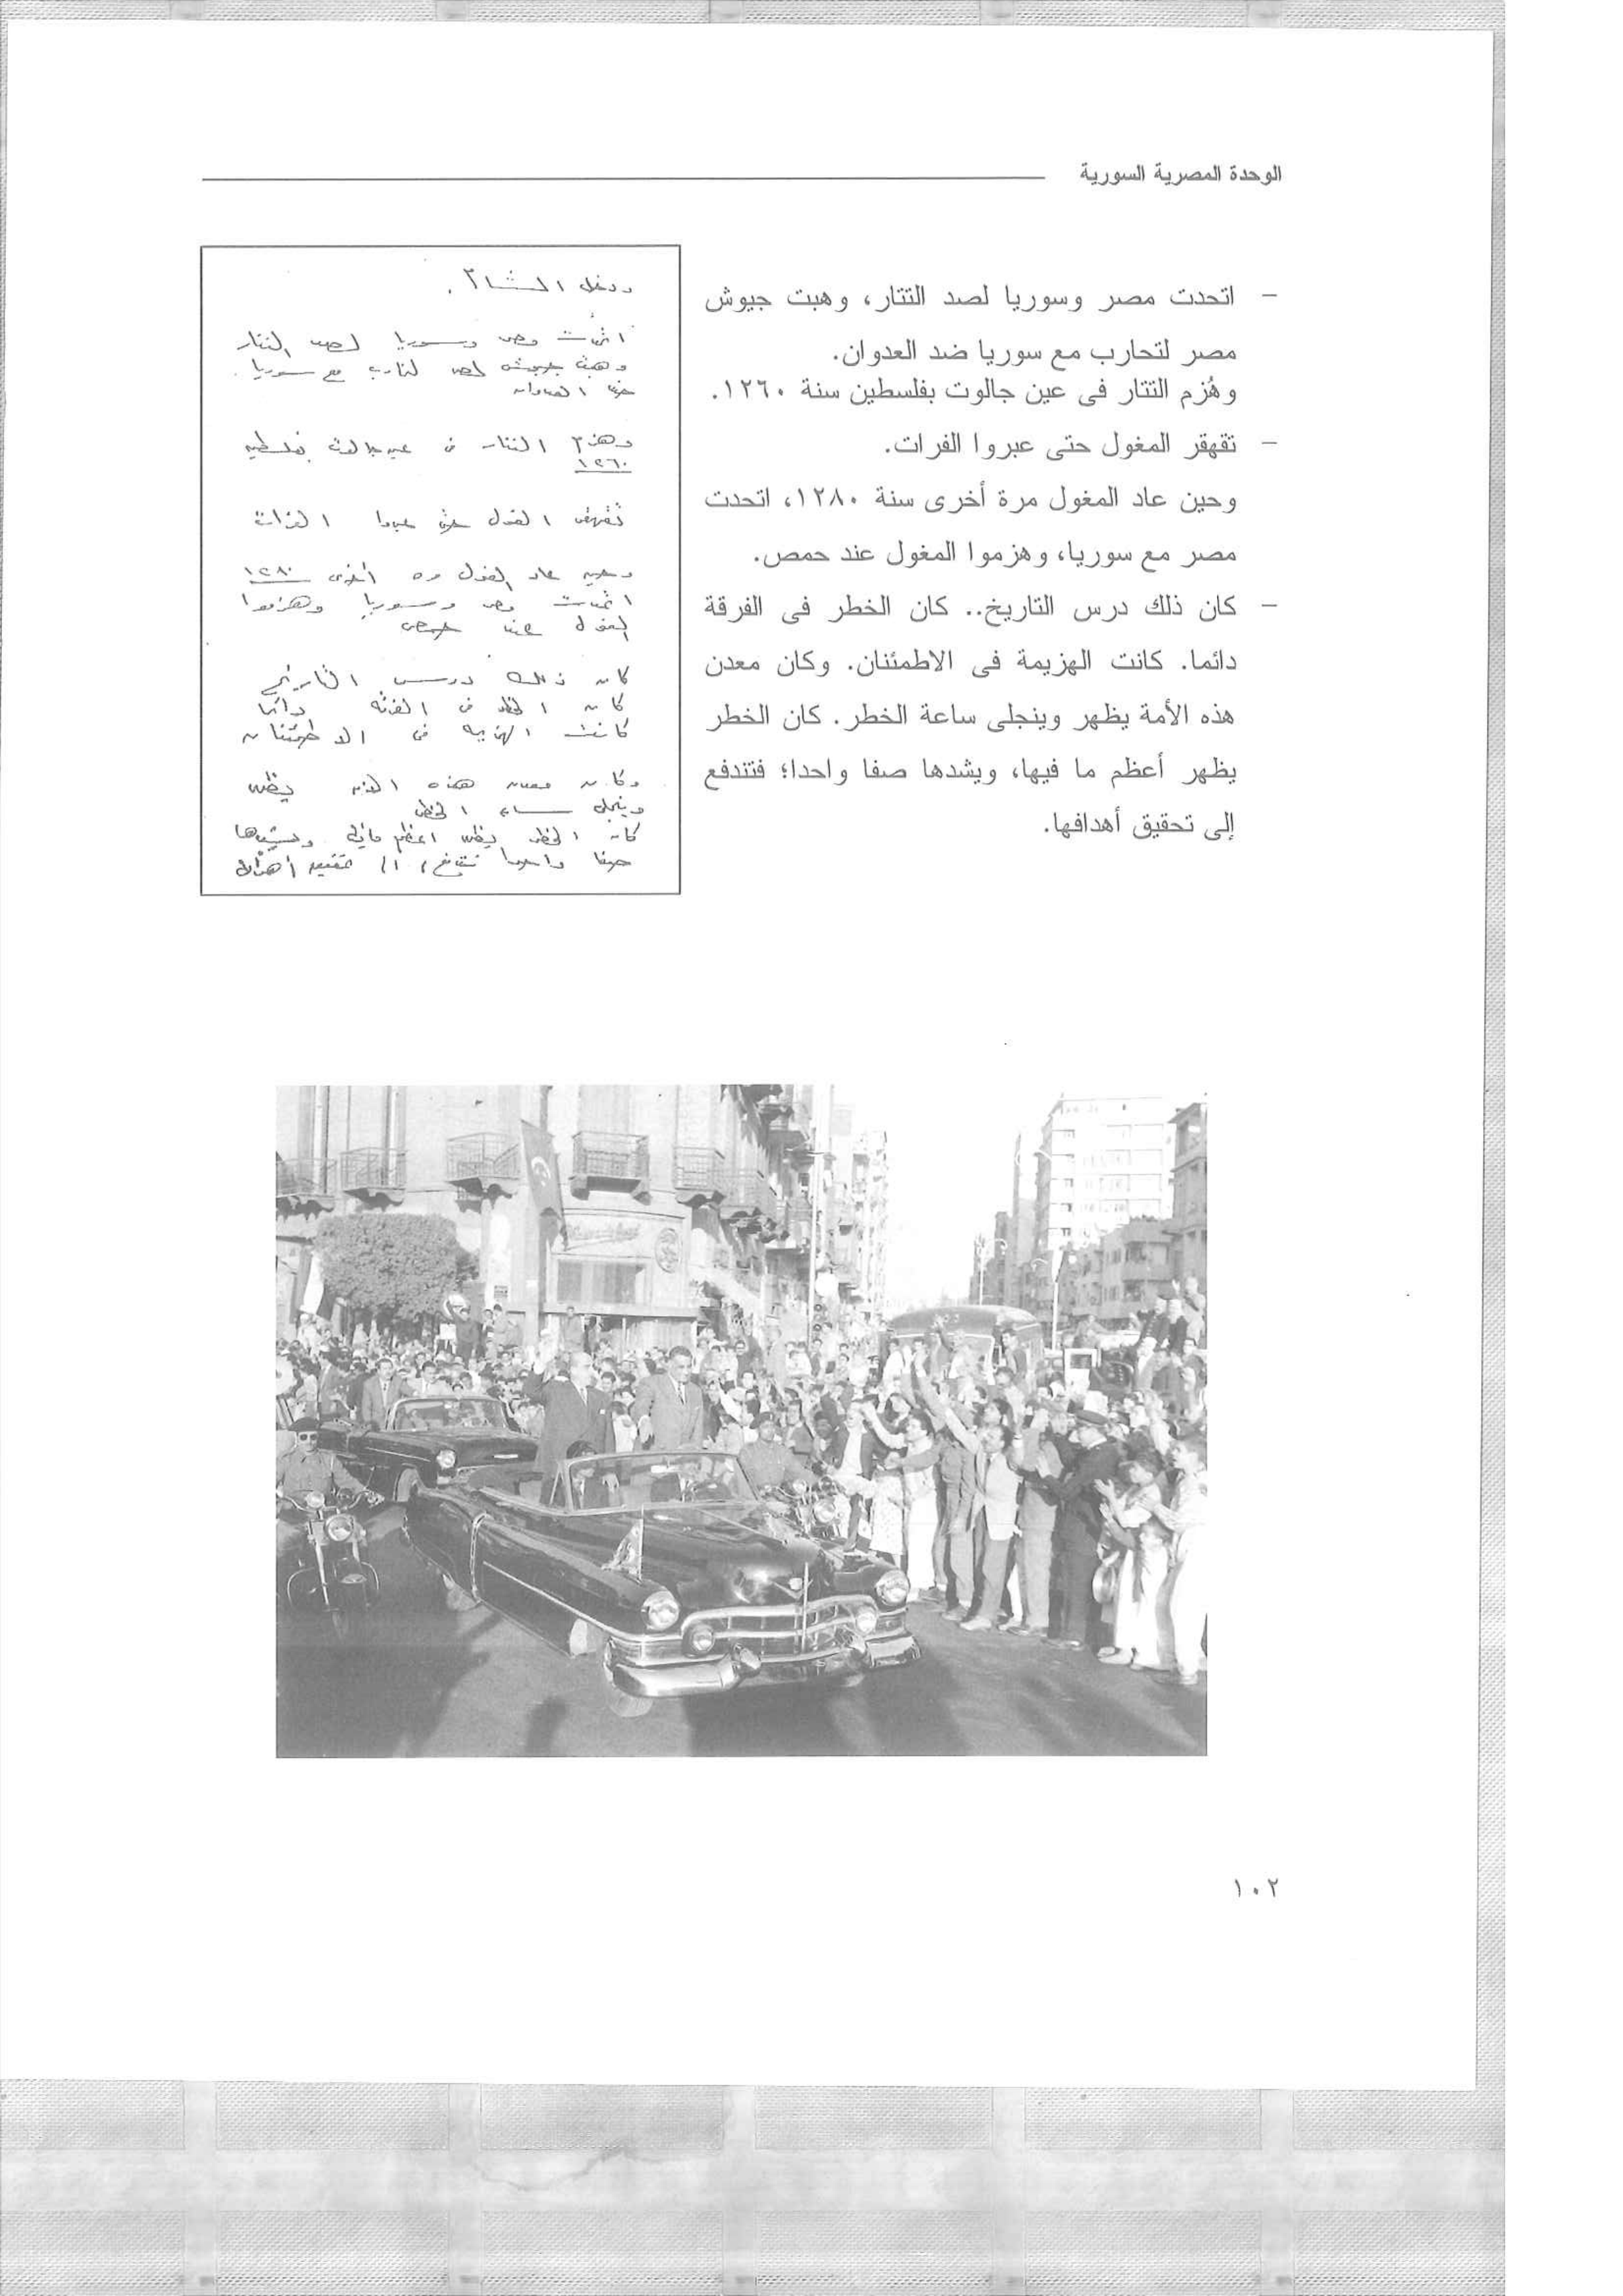 الوحدة المصرية السورية
– اتحدت مصر وسوريا لصد التتار، وهبت جيوش
مصر لتحارب مع سوريا ضد العدوان.
وهُزم التتار فى عين جالوت بفلسطين سنة ١٢٦٠.
– تقهقر المغول حتى عبروا الفرات.
وحين عاد المغول مرة أخرى سنة ١٢٨٠، اتحدت
مصر مع سوريا، وهزموا المغول عند حمص.
– كان ذلك درس التاريخ.. كان الخطر فى الفرقة
دائما. كانت الهزيمة فى الاطمئنان. وكان معدن
هذه الأمة يظهر وينجلى ساعة الخطر. كان الخطر
يظهر أعظم ما فيها، ويشدها صفا واحدا؛ فتندفع
إلى تحقيق أهدافها.
ودخل الشام.
اتحدت مصر وسوريا لصد التتار
وهبت جيوش مصر لتحارب مع سوريا.
ضد العدوان
وهزم التتار فى عين جالوت بفلسطين
١٢٦٠
تقهقر المغول حتى عبروا الفرات
وحين عاد المغول مره أخرى ١٢٨٠
اتحدت مصر وسوريا وهزموا
المغول عند حمص
كان ذلك درس التاريخ
كان الخطر فى الفرقه دائما
كانت الهزيمه فى الاطمئنان
وكان معدن هذه الامه يظهر
وينجلى ساعه الخطر
كان الخطر يظهر اعظم مافيها ويشدها
صفا واحدا فتندفع الى تحقيق أهدافها
١٠٢